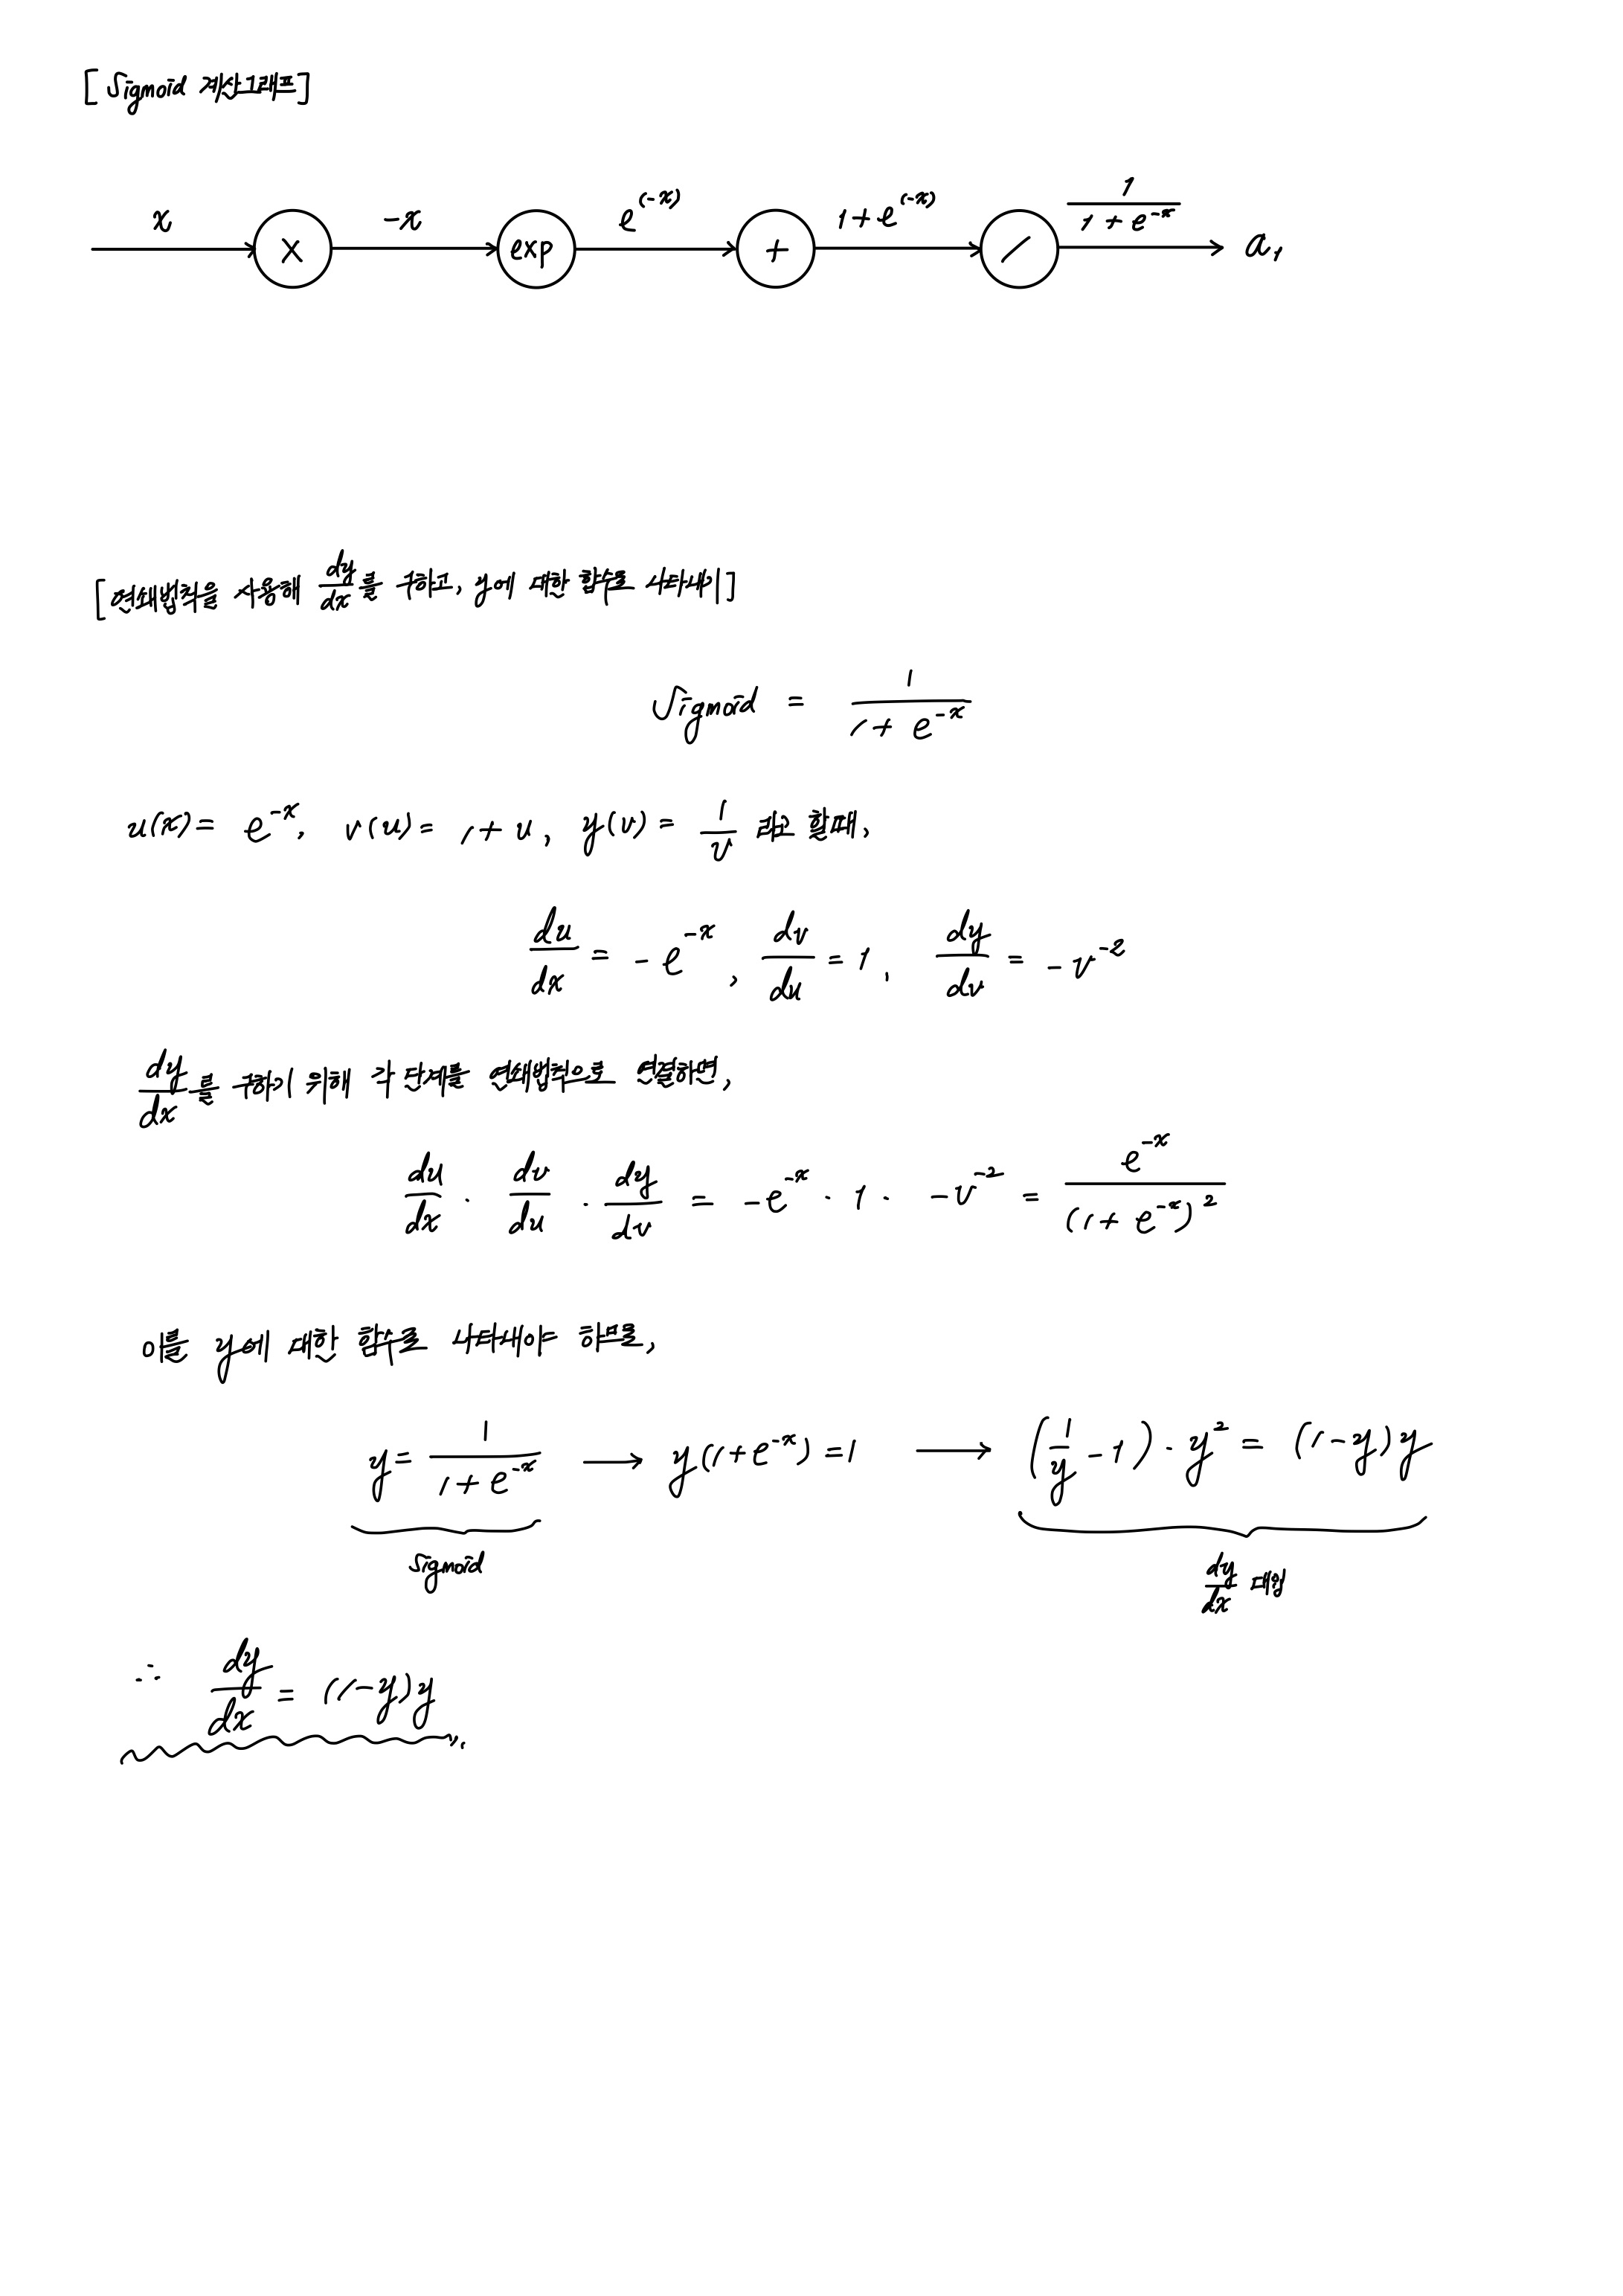 [Sigmoid 계산그래프]
x → × → -x → exp → e^(-x) → + → 1+e^(-x) → / → 1/(1+e^-x) → a₁
[연쇄법칙을 사용해 dy/dx를 구하고, y에 대한 함수로 나타내기]
Sigmoid = 1/(1+e^-x)
u(x) = e^-x, v(u) = 1+u, y(v) = 1/v 라고 할때,
du/dx = -e^-x, dv/du = 1, dy/dv = -v^-2
dy/dx를 구하기 위해 각 단계를 연쇄법칙으로 연결하면,
du/dx · dv/du · dy/dv = -e^-x · 1 · -v^-2 = e^-x/(1+e^-x)^2
이를 y에 대한 함수로 나타내야 하므로,
y = 1/(1+e^-x) → y(1+e^-x) = 1 → (1/y - 1) · y^2 = (1-y)y
Sigmoid
dy/dx 대입
∴ dy/dx = (1-y)y